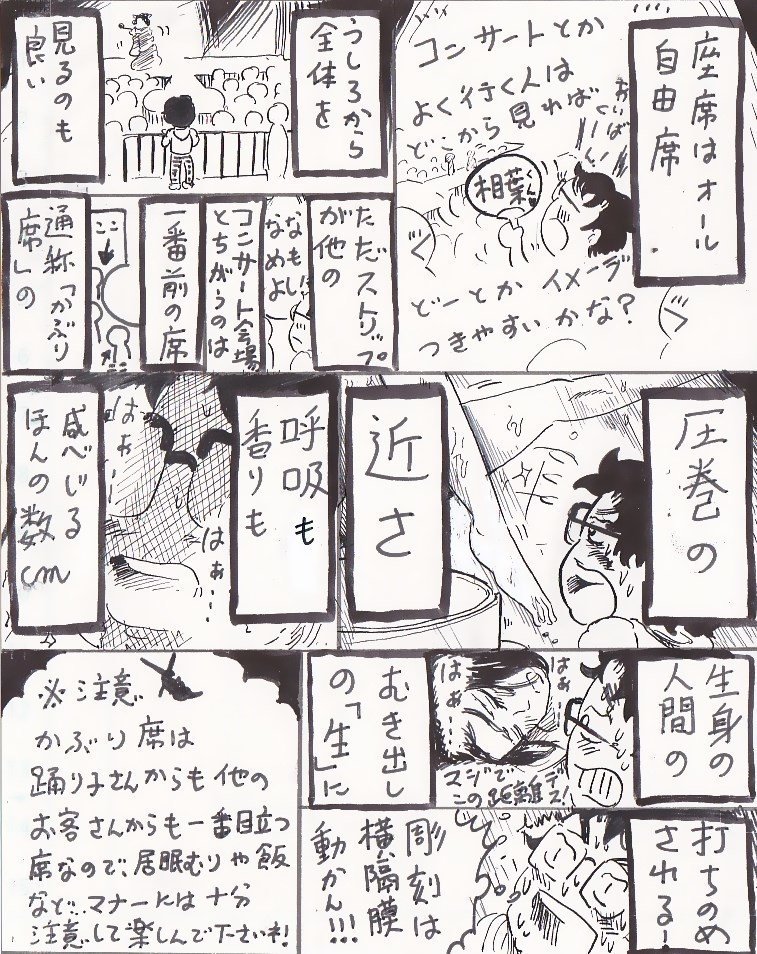 座席はオール
自由席
コンサートとか
よく行く人は
どこから見れば
おいばー
くーん
相葉
くん
どーとか イメージ
つきやすいかな?
うしろから
全体を
見るのも
良い
ただストリップ
が他の
なもい!
なめよ
コンサート会場
とちがうのは
一番前の席
ここ
通称「かぶり
席」の
圧巻の
近さ
呼吸も
香りも
はぁー…
はぁー…
感べじる
ほんの数
cm
生身の
人間の
はぁ
はぁー
はぁー
スジで
この距離デス!
むき出し
の「生」に
打ちのめ
される!
彫刻は
横隔膜
動かん!!!
※注意
かぶり席は
踊り子さんからも他の
お客さんからも一番目立つ
席なので、居眠むりや飯
など…マナーには十分
注意して楽しんで下さいネ!